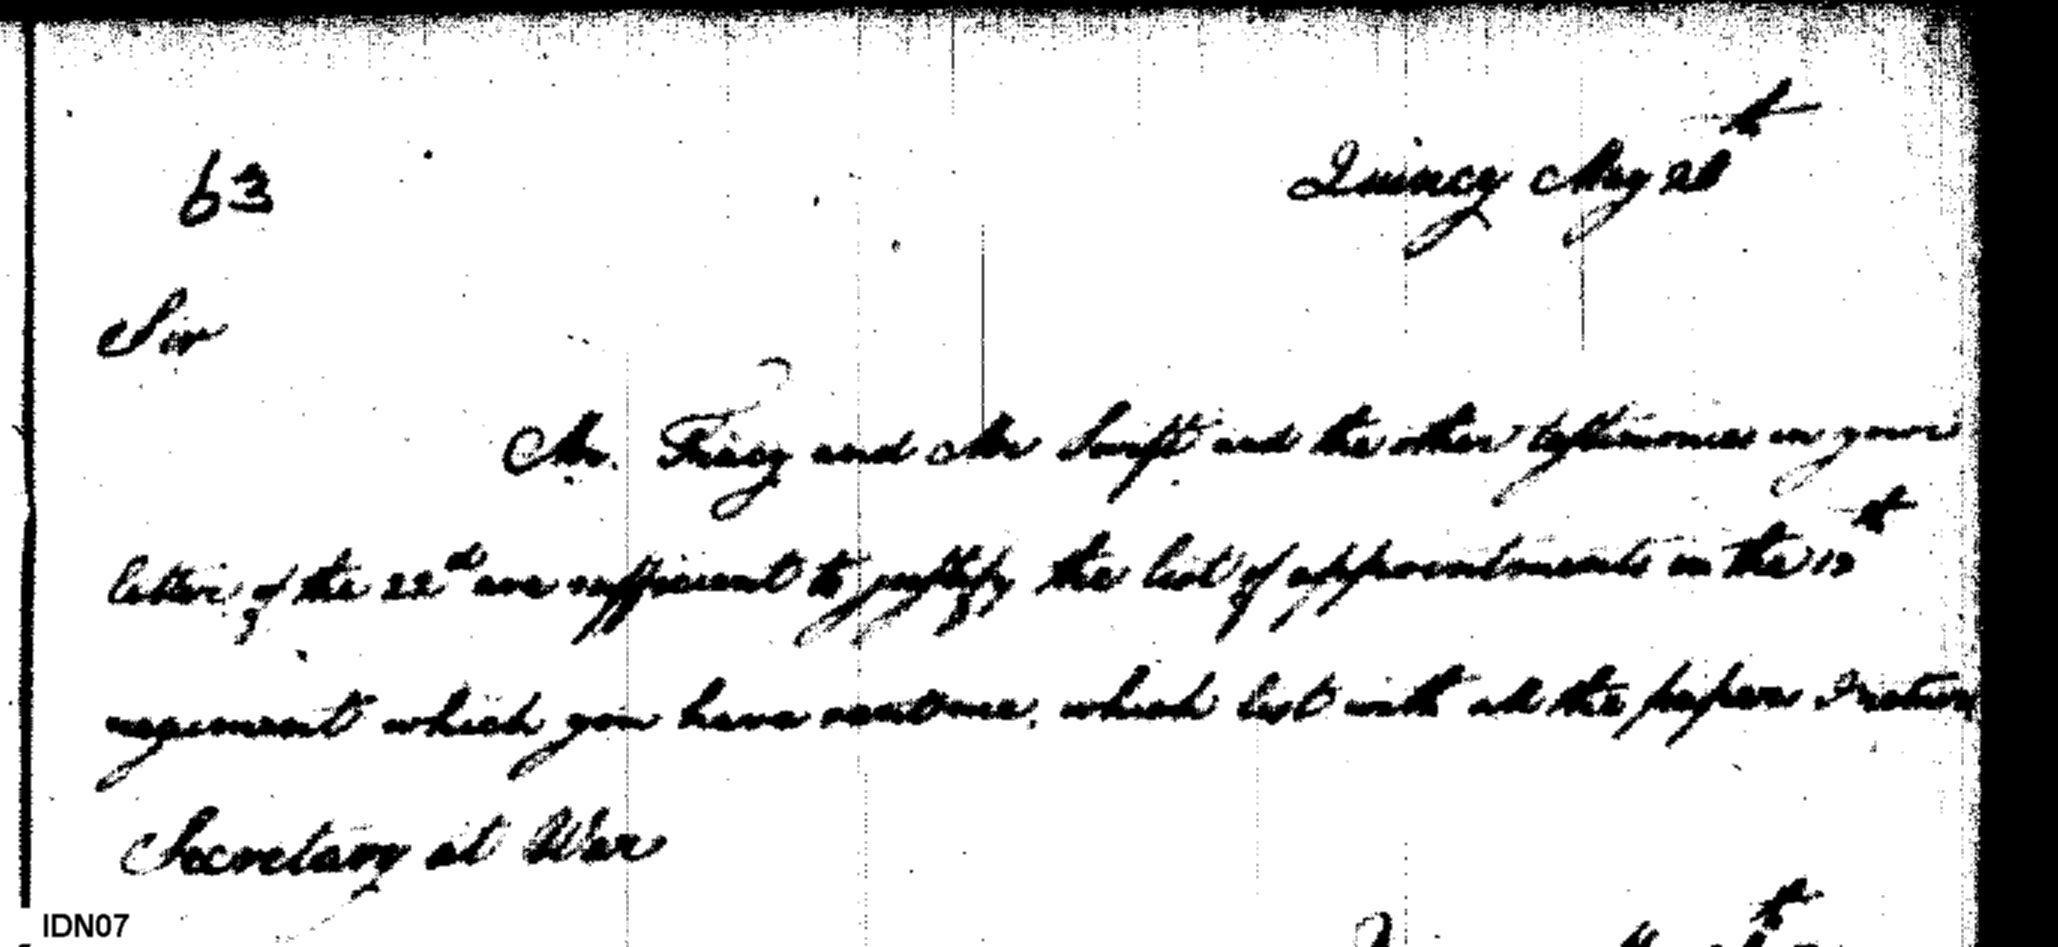 63
Quincy May 28th
Sir
Mr. Tracy and Mr Swift and the other testimonies in your
letter of the 22d are sufficient to justify the list of appointments in the 13th
regiment which you have sent me, which list with all the papers I return
Secretary at War
IDN07